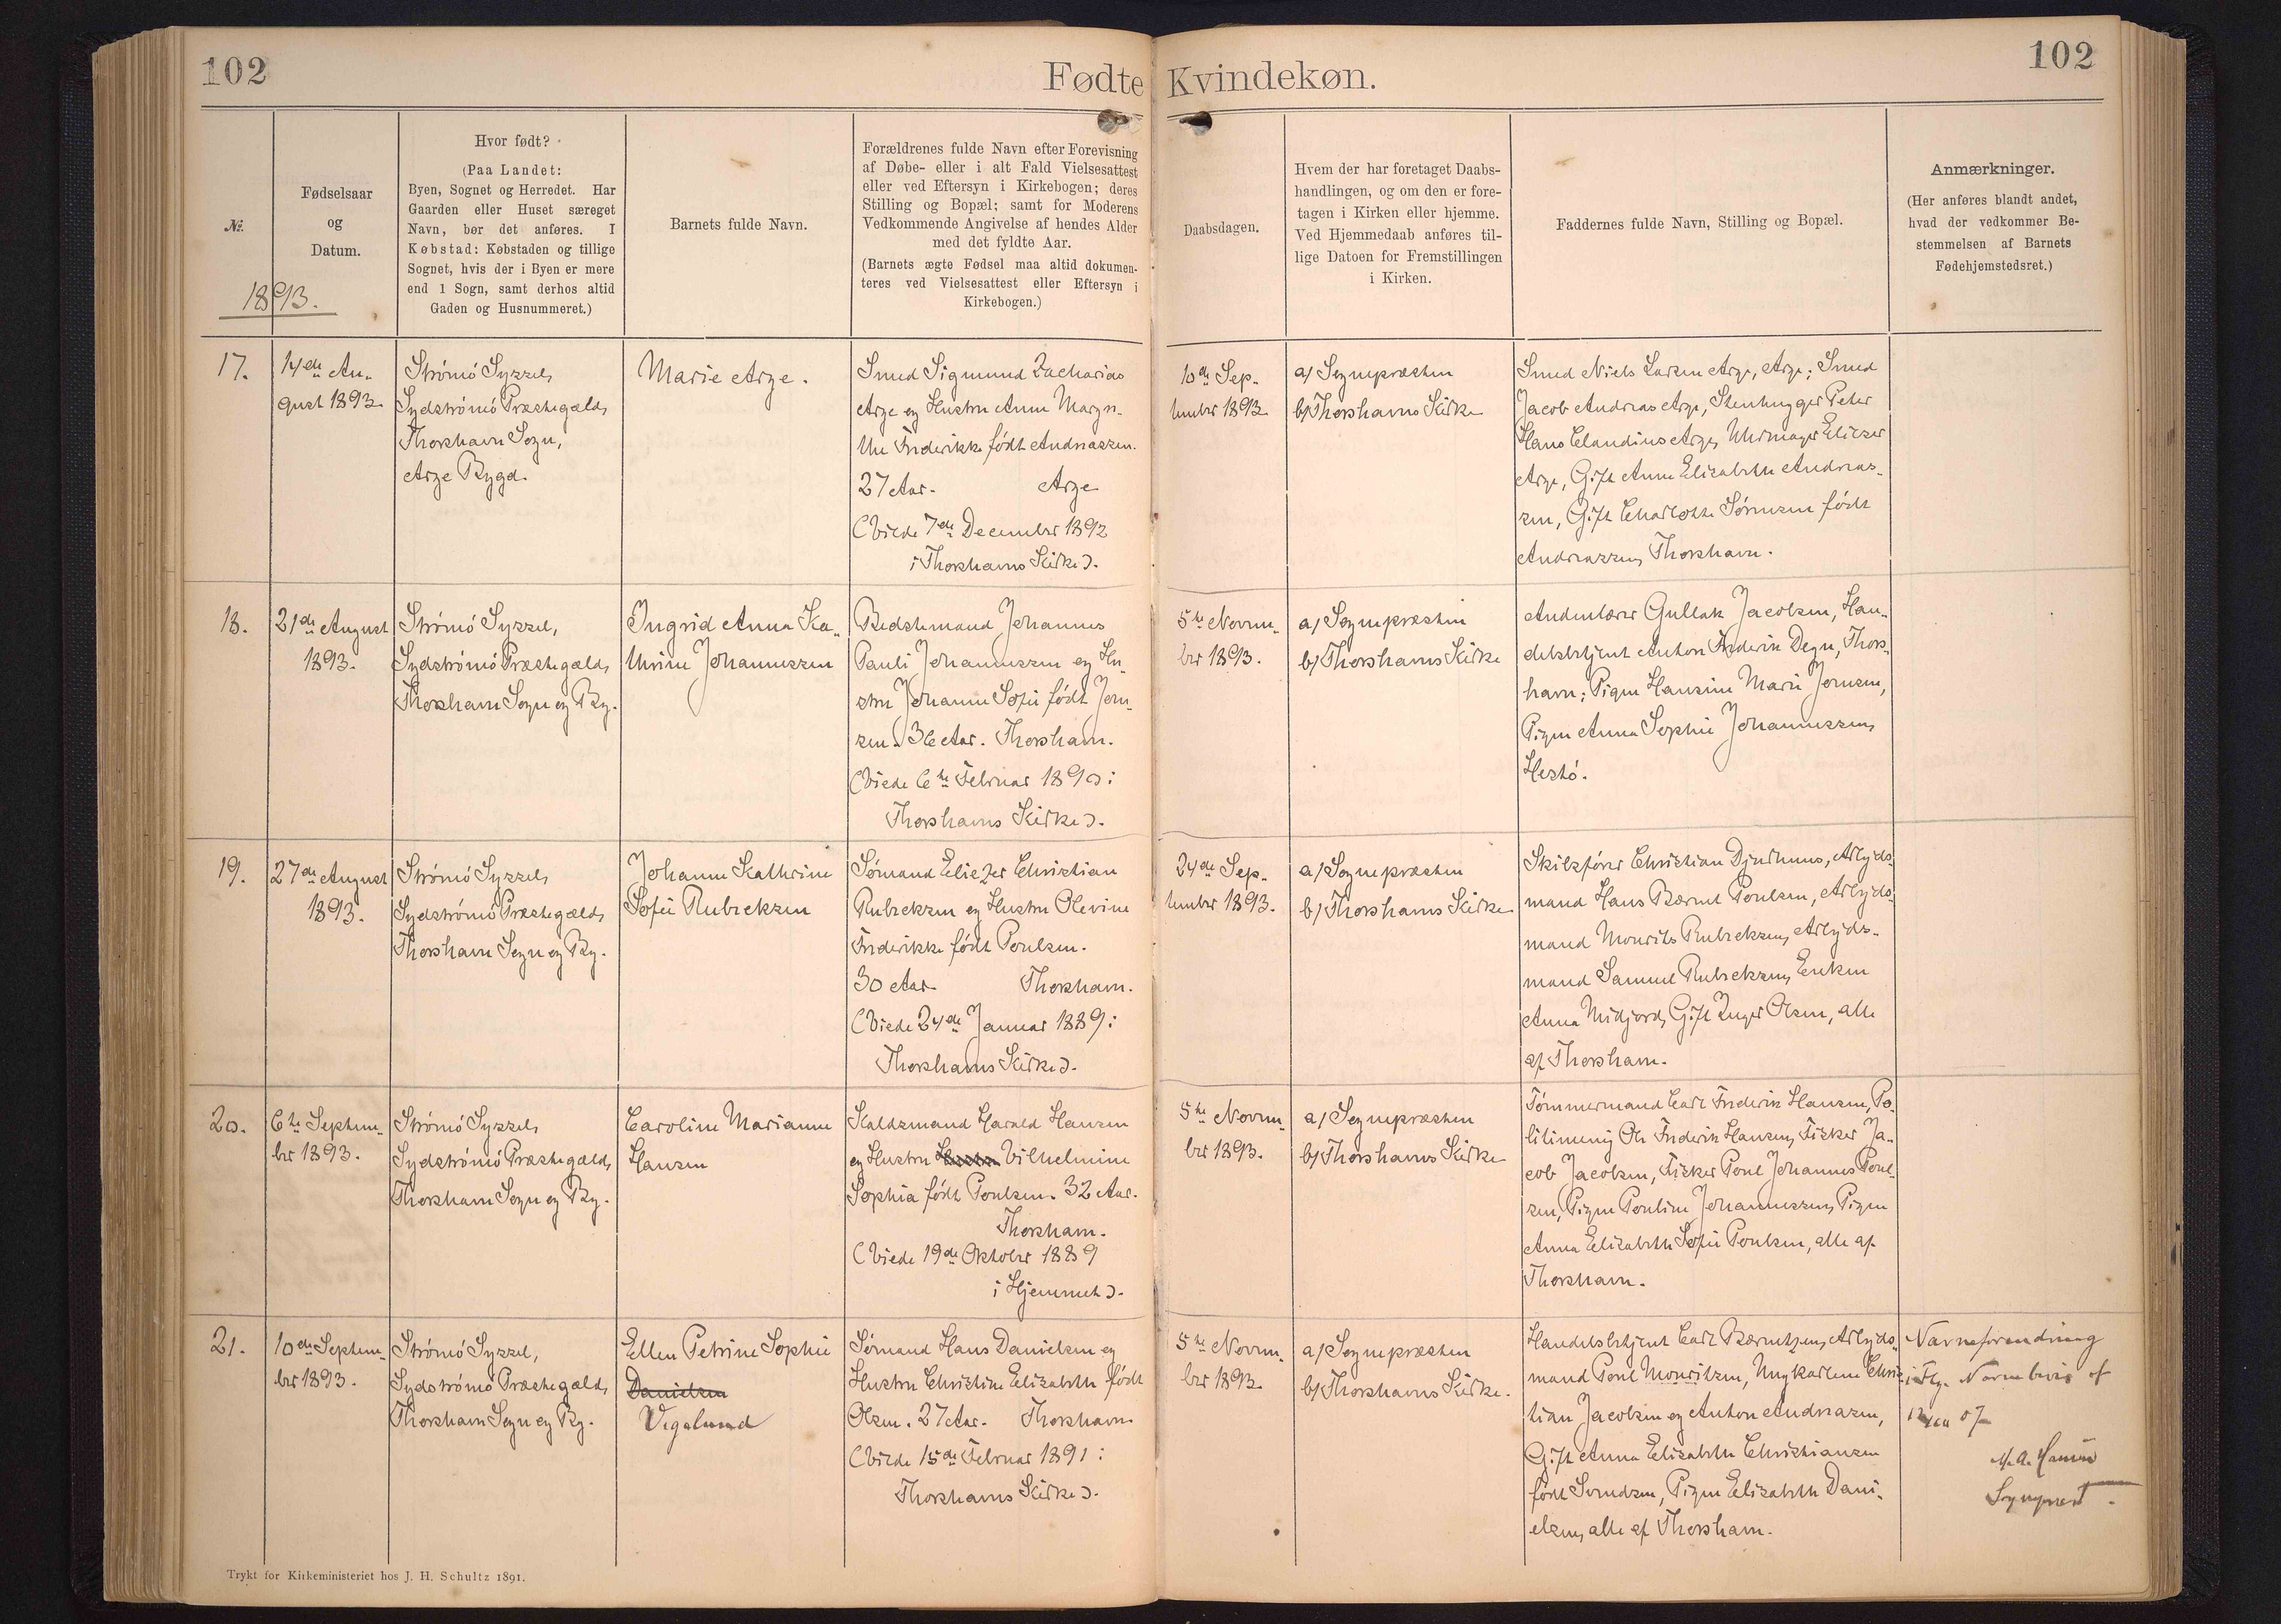 102
Fødte
Kvindekøn.
102
№
1893.
Fødselsaar
og
Datum.
Hvor født?
(Paa Landet:
Byen, Sognet og Herredet. Har
Gaarden eller Huset særeget
Navn, bør det anføres. I
Købstad: Købstaden og tillige
Sognet, hvis der i Byen er mere
end 1 Sogn, samt derhos altid
Gaden og Husnummeret.)
Barnets fulde Navn.
Forældrenes fulde Navn efter Forevisning
af Døbe- eller i alt Fald Vielsesattest
eller ved Eftersyn i Kirkebogen; deres
Stilling og Bopæl; samt for Moderens
Vedkommende Angivelse af hendes Alder
med det fyldte Aar.
(Barnets ægte Fødsel maa altid dokumen-
teres ved Vielsesattest eller Eftersyn i
Kirkebogen.)
Daabsdagen.
Hvem der har foretaget Daabs-
handlingen, og om den er fore-
tagen i Kirken eller hjemme.
Ved Hjemmedaab anføres til-
lige Datoen for Fremstillingen
i Kirken.
Faddernes fulde Navn, Stilling og Bopæl.
Anmærkninger.
(Her anføres blandt andet,
hvad der vedkommer Be-
stemmelsen af Barnets
Fødehjemstedsret.)
17.
14de Au-
gust 1893.
Strömö Syssel,
Sydströmö Præstegæld,
Thorshavn Sogn,
Arge Bygd.
Marie Arge.
Smed Sigmund Zacharias
Arge og Hustru Anne Margre-
the Frederikke født Andreassen.
27 Aar. Arge
(Viede 7de December 1892
i Thorshavns Kirke).
10de Sep-
tember 1893.
a) Sognepræsten
b) Thorshavns Kirke
Smed Niels Larsen Arge, Arge; Smed
Jacob Andreas Arge, Stenhugger Peter
Hans Claudius Arge, Uhrmager Eliezer
Arge, Gift Anne Elisabeth Andreas-
sen, Gift Charlotte Sörensen født
Andreassen, Thorshavn.
18.
21de August
1893.
Strömö Syssel,
Sydströmö Præstegæld,
Thorshavn Sogn og By.
Ingrid Anna Ka-
thrine Johannessen
Bedstemand Johannes
Pauli Johannessen og Hu-
stru Johanne Sofie født Joen-
sen. 36 Aar. Thorshavn.
(Viede 6te Februar 1890 i
Thorshavns Kirke).
5te Novem-
ber 1893.
a) Sognepræsten
b) Thorshavns Kirke
Andenlærer Gullak Jacobsen, Han-
delsbetjent Anton Frederik Degn, Thors-
havn; Pigen Hansine Marie Joensen,
Pigen Anna Sophie Johannessen,
Hestö.
19.
27de August
1893.
Strömö Syssel,
Sydströmö Præstegæld,
Thorshavn Sogn og By.
Johanne Kathrine
Sofie Rubeksen
Sömand Eliezer Christian
Rubeksen og Hustru Olevine
Frederikke født Poulsen.
30 Aar. Thorshavn.
(Viede 24de Januar 1889 i
Thorshavns Kirke).
24de Sep-
tember 1893.
a) Sognepræsten
b) Thorshavns Kirke
Skibsförer Christian Djurhuus, Arbejds-
mand Hans Berent Poulsen, Arbejds-
mand Mourits Rubeksen, Arbejds-
mand Samuel Rubeksen, Enken
Anna Midjord, Gift Inger Olsen, alle
af Thorshavn.
20.
6te Septem-
ber 1893.
Strömö Syssel,
Sydströmö Præstegæld,
Thorshavn Sogn og By.
Caroline Marianne
Hansen
Kuldsmand Harald Hansen
og Hustru Vilhelmine
Sophia født Poulsen. 32 Aar.
Thorshavn.
(Viede 19de Oktober 1889
i Hjemmet).
5te Novem-
ber 1893.
a) Sognepræsten
b) Thorshavns Kirke
Tömmermand Carl Frederik Hansen, Po-
litimenig Ole Frederik Hansen, Fisker Ja-
cob Jacobsen, Fisker Poul Johannes Poul-
sen, Pigen Pouline Johannessen, Pigen
Anna Elisabeth Sofie Poulsen, alle af
Thorshavn.
21.
10de Septem-
ber 1893.
Strömö Syssel,
Sydströmö Præstegæld,
Thorshavn Sogn og By.
Ellen Petrine Sophie
Danielsen
Vigelund
Sömand Hans Danielsen og
Hustru Christine Elisabeth født
Olsen. 27 Aar. Thorshavn.
(Viede 15de Februar 1891 i
Thorshavns Kirke).
5te Novem-
ber 1893.
a) Sognepræsten
b) Thorshavns Kirke.
Handelsbetjent Carl Berentzen, Arbejds-
mand Poul Mouritzen, Ungkarlene Chri-
stian Jacobsen og Anton Andreasen,
Gift Anna Elisabeth Christiansen
født Svendsen, Pigen Elisabeth Dani-
elsen, alle af Thorshavn.
Navneforandring
i Flg. Navnebevis af
07
Sognepræst.
Trykt for Kirkeministeriet hos J. H. Schultz 1891.